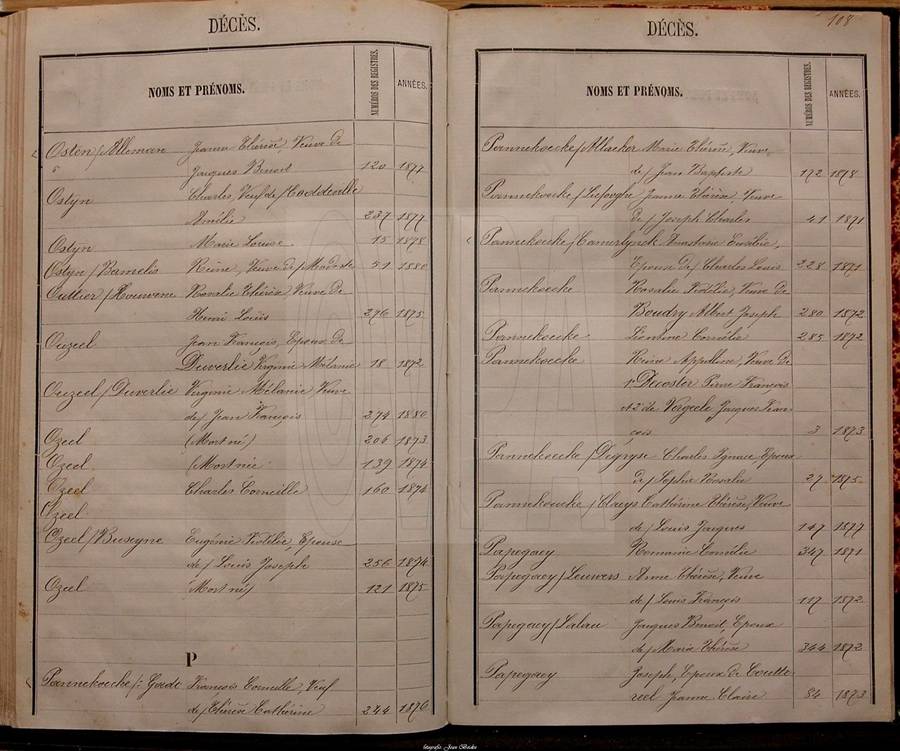 DÉCÈS.
NOMS ET PRÉNOMS. NUMÉROS DES REGISTRES. ANNÉES.
Osten / Alleman Jeanne Thérèse, Veuve de
Jacques Benoit 120 1877
Ostyn Charles, Veuf de /
Amélie 237 1877
Ostyn Marie Louise 15 1878
Ostyn / Bamelis Reine, Veuve de / Modeste 51 1880
Outtier / Rosalie Thérèse, Veuve de
Henri Louis 276 1875
Ouzeel Jean François, Epoux de
Duverlie Virginie Mélanie 18 1872
Ouzeel / Duverlie Virginie Mélanie Veuve
de / Jean François 274 1880
Ozeel (Mort né) 206 1873
Ozeel (Mort née 139 1874
Ozeel Charles Corneille 160 1874
Ozeel
Ozeel / Buseyne Eugénie Epouse
de / Louis Joseph 256 1874
Ozeel (Mort né) 121 1875
P
Pannekoecke / François Corneille, Veuf
de / Thérèse Cathérine 244 1876
DÉCÈS. 108
NOMS ET PRÉNOMS. NUMÉROS DES REGISTRES. ANNÉES.
Pannekoecke / Marie Thérèse, Veuve
de / Jean Baptiste 172 1878
Pannekoecke / Liefooghe Jeanne Thérèse Veuve
de / Joseph Charles 41 1871
Pannekoecke / Camerlynck Anastasie Eusélie,
Epoux de / Charles Louis 228 1871
Pannekoecke Rosalie Fidélie, Veuve de
Boudry Albert Joseph 280 1872
Pannekoecke Léontine Cornélie 285 1872
Pannekoecke Reine Appoline, Veuve de
1° Decoster Pierre François
et 2° de Vergeele Jacques Fran-
çois 3 1873
Pannekoecke / Degryse Charles Ignace Epoux
de / Sophie Rosalie 27 1875
Pannekoecke / Claeys Cathérine Thérèse, Veuve
de / Louis Jacques 147 1877
Papegaey Romanie Cornélie 347 1871
Papegaey / Leuwers Anne Thérèse, Veuve
de / Louis François 117 1872
Papegaey / Lalau Jacques Benoit, Epoux
de / Marie Thérèse 344 1872
Papegaey Joseph, Epoux de Coutte-
reel Jeanne Claire 84 1873